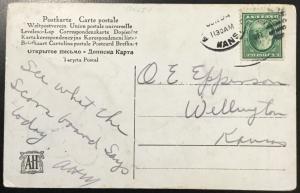 Postkarte Carte postale
Weltpostverein. Union postale universelle
Levelezo-Lap Correspondenzkarte Dopisnice
Karta korespondencyjna Korespondenční lístek
Briefkaart Cartolina postale Postcard Brefkort
открытое письмо - Дописна Карта
Tarjeta Postal
11 30 AM
KANS.
See what the
Score board Says
today
O. E. Epperson
Wellington
Kansas
AH